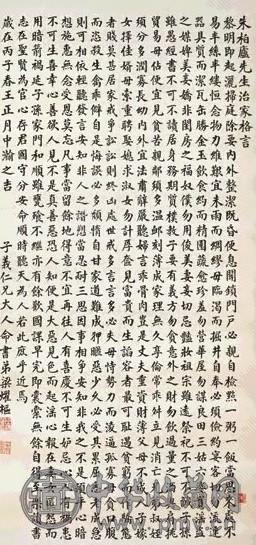 朱柏廬先生治家格言
黎明即起灑掃庭除要內外整潔既昏便息關鎖門戶必親自檢點一粥一飯當思來處不
易半絲半縷恒念物力維艱宜未雨而綢繆毋臨渴而掘井自奉必須儉約宴客切勿流連
器具質而潔瓦缶勝金玉飲食約而精園蔬愈珍饈勿營華屋勿謀良田三姑六婆實淫盜
之媒婢美妾嬌非閨房之福奴僕勿用俊美妻妾切忌豔妝祖宗雖遠祭祀不可不誠子孫
雖愚經書不可不讀居身務期質樸教子要有義方勿貪意外之財勿飲過量之酒與肩挑
貿易毋佔便宜見貧苦親鄰須多溫卹刻薄成家理無久享倫常乖舛立見消亡兄弟叔姪
須分多潤寡長幼內外宜法肅辭嚴聽婦言乖骨肉豈是丈夫重資財薄父母不成人子嫁
女擇佳婿毋索重聘娶媳求淑女勿計厚奩見富貴而生諂容者最可恥遇貧窮而作驕態
者賤莫甚居家戒爭訟訟則終凶處世戒多言言多必失毋恃勢力而凌逼孤寡毋貪口腹
而恣殺生禽乖僻自是悔誤必多頹惰自甘家道難成狎暱惡少久必受其累屈志老成急
則可相依輕聽發言安知非人之譖愬當忍耐三思因事相爭安知非我之不是須平心暗
想施惠無念受恩莫忘凡事當留餘地得意不宜再往人有喜慶不可生妒忌心人有禍患
不可生喜幸心善欲人見不是真善惡恐人知便是大惡見色而起淫心報在妻女匿怨而
用暗箭禍延子孫家門和順雖饔飧不繼亦有餘歡國課早完即囊橐無餘自得至樂讀書
志在聖賢為官心存君國守分安命順時聽天為人若此庶乎近焉
歲在丙子春王正月中澣之吉
子義仁兄大人命書弟梁耀樞